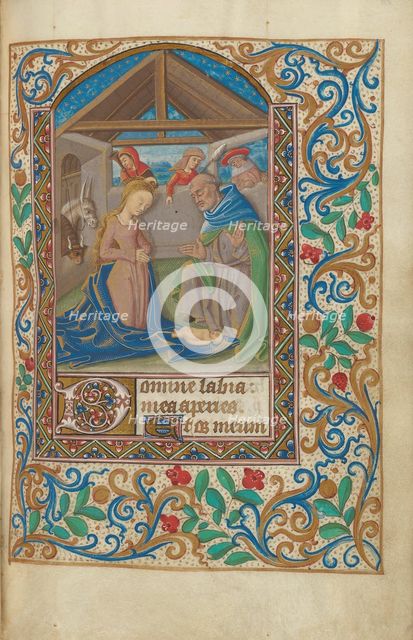 Heritage Heritage
Heritage © Heritage
Domine labia
mea aperies
Et os meum
Heritage Heritage